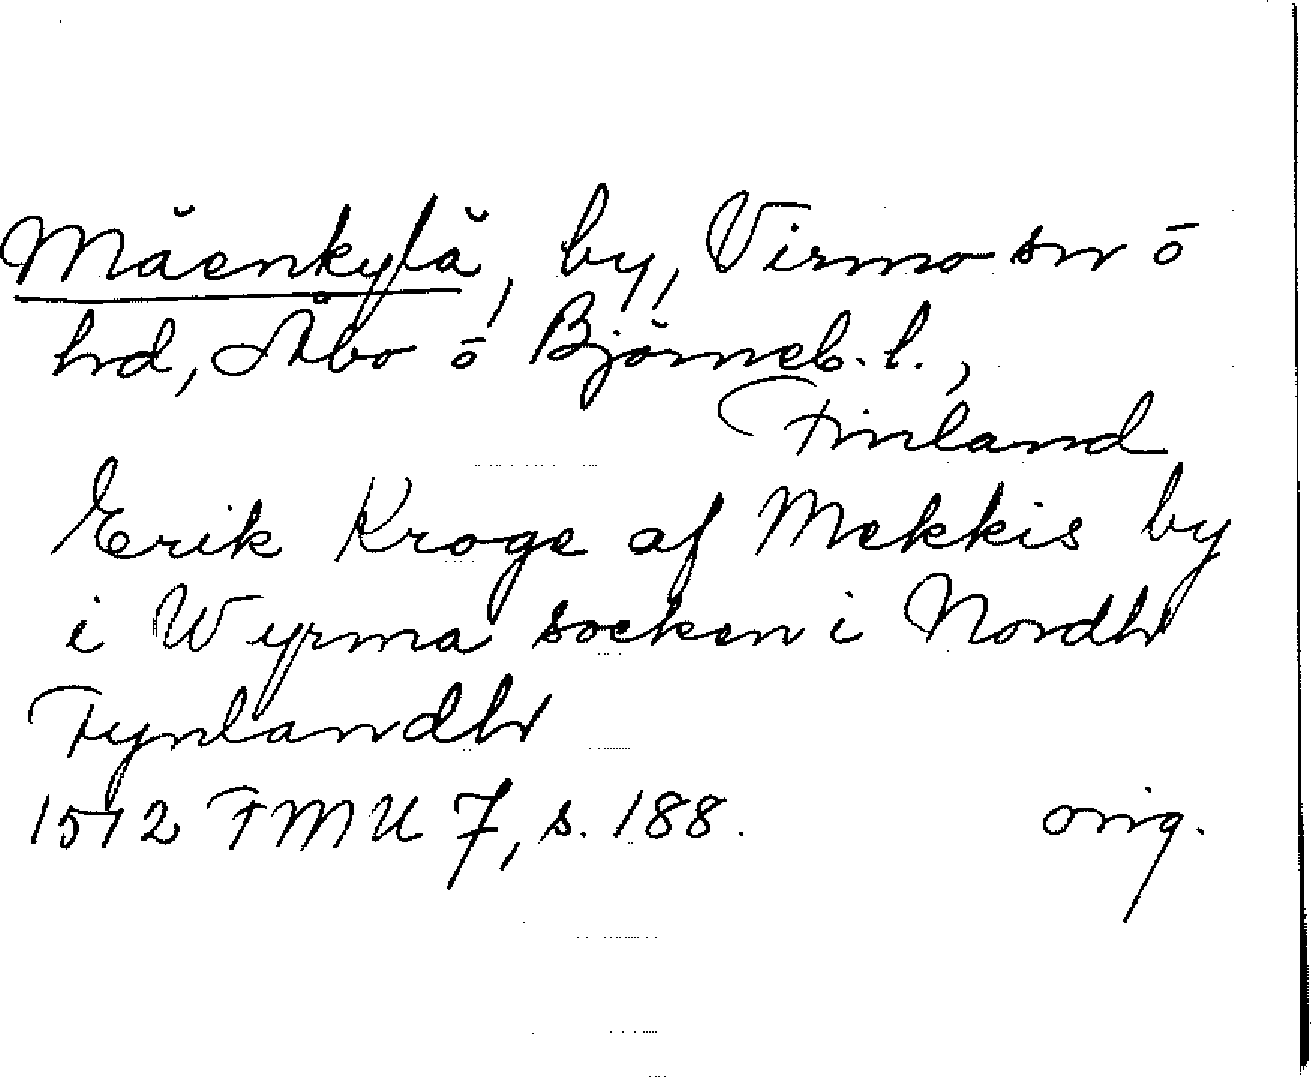 Mäenkylä, by, Virmo sn ō
hd, Åbo ō Björneb. l.,
Finland
Erik Kroge af Mekkis by
i Wyrma socken i Nordh
Fynlandh
1512 FMU 7, s. 188. orig.